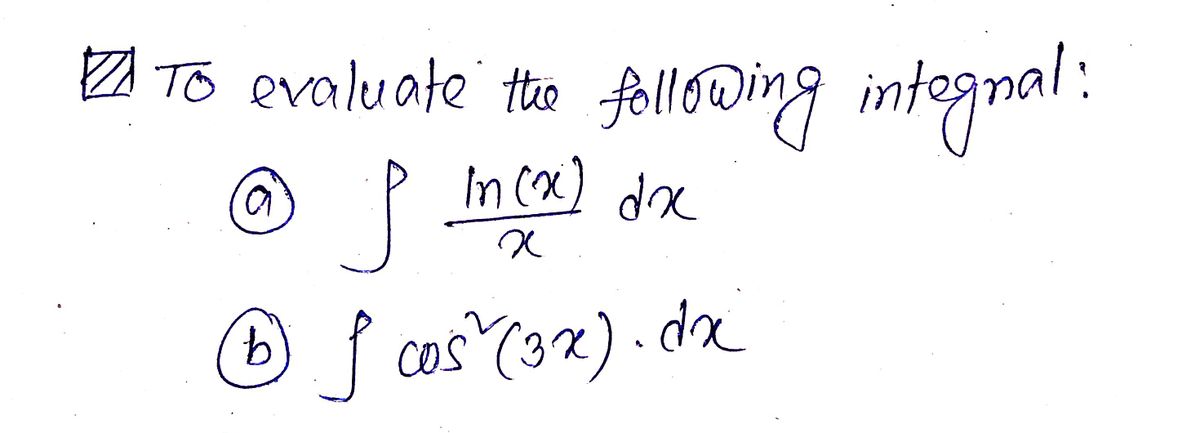 To evaluate the following integral:
ⓐ ∫ ln(x)/x dx
ⓑ ∫ cos²(3x) . dx